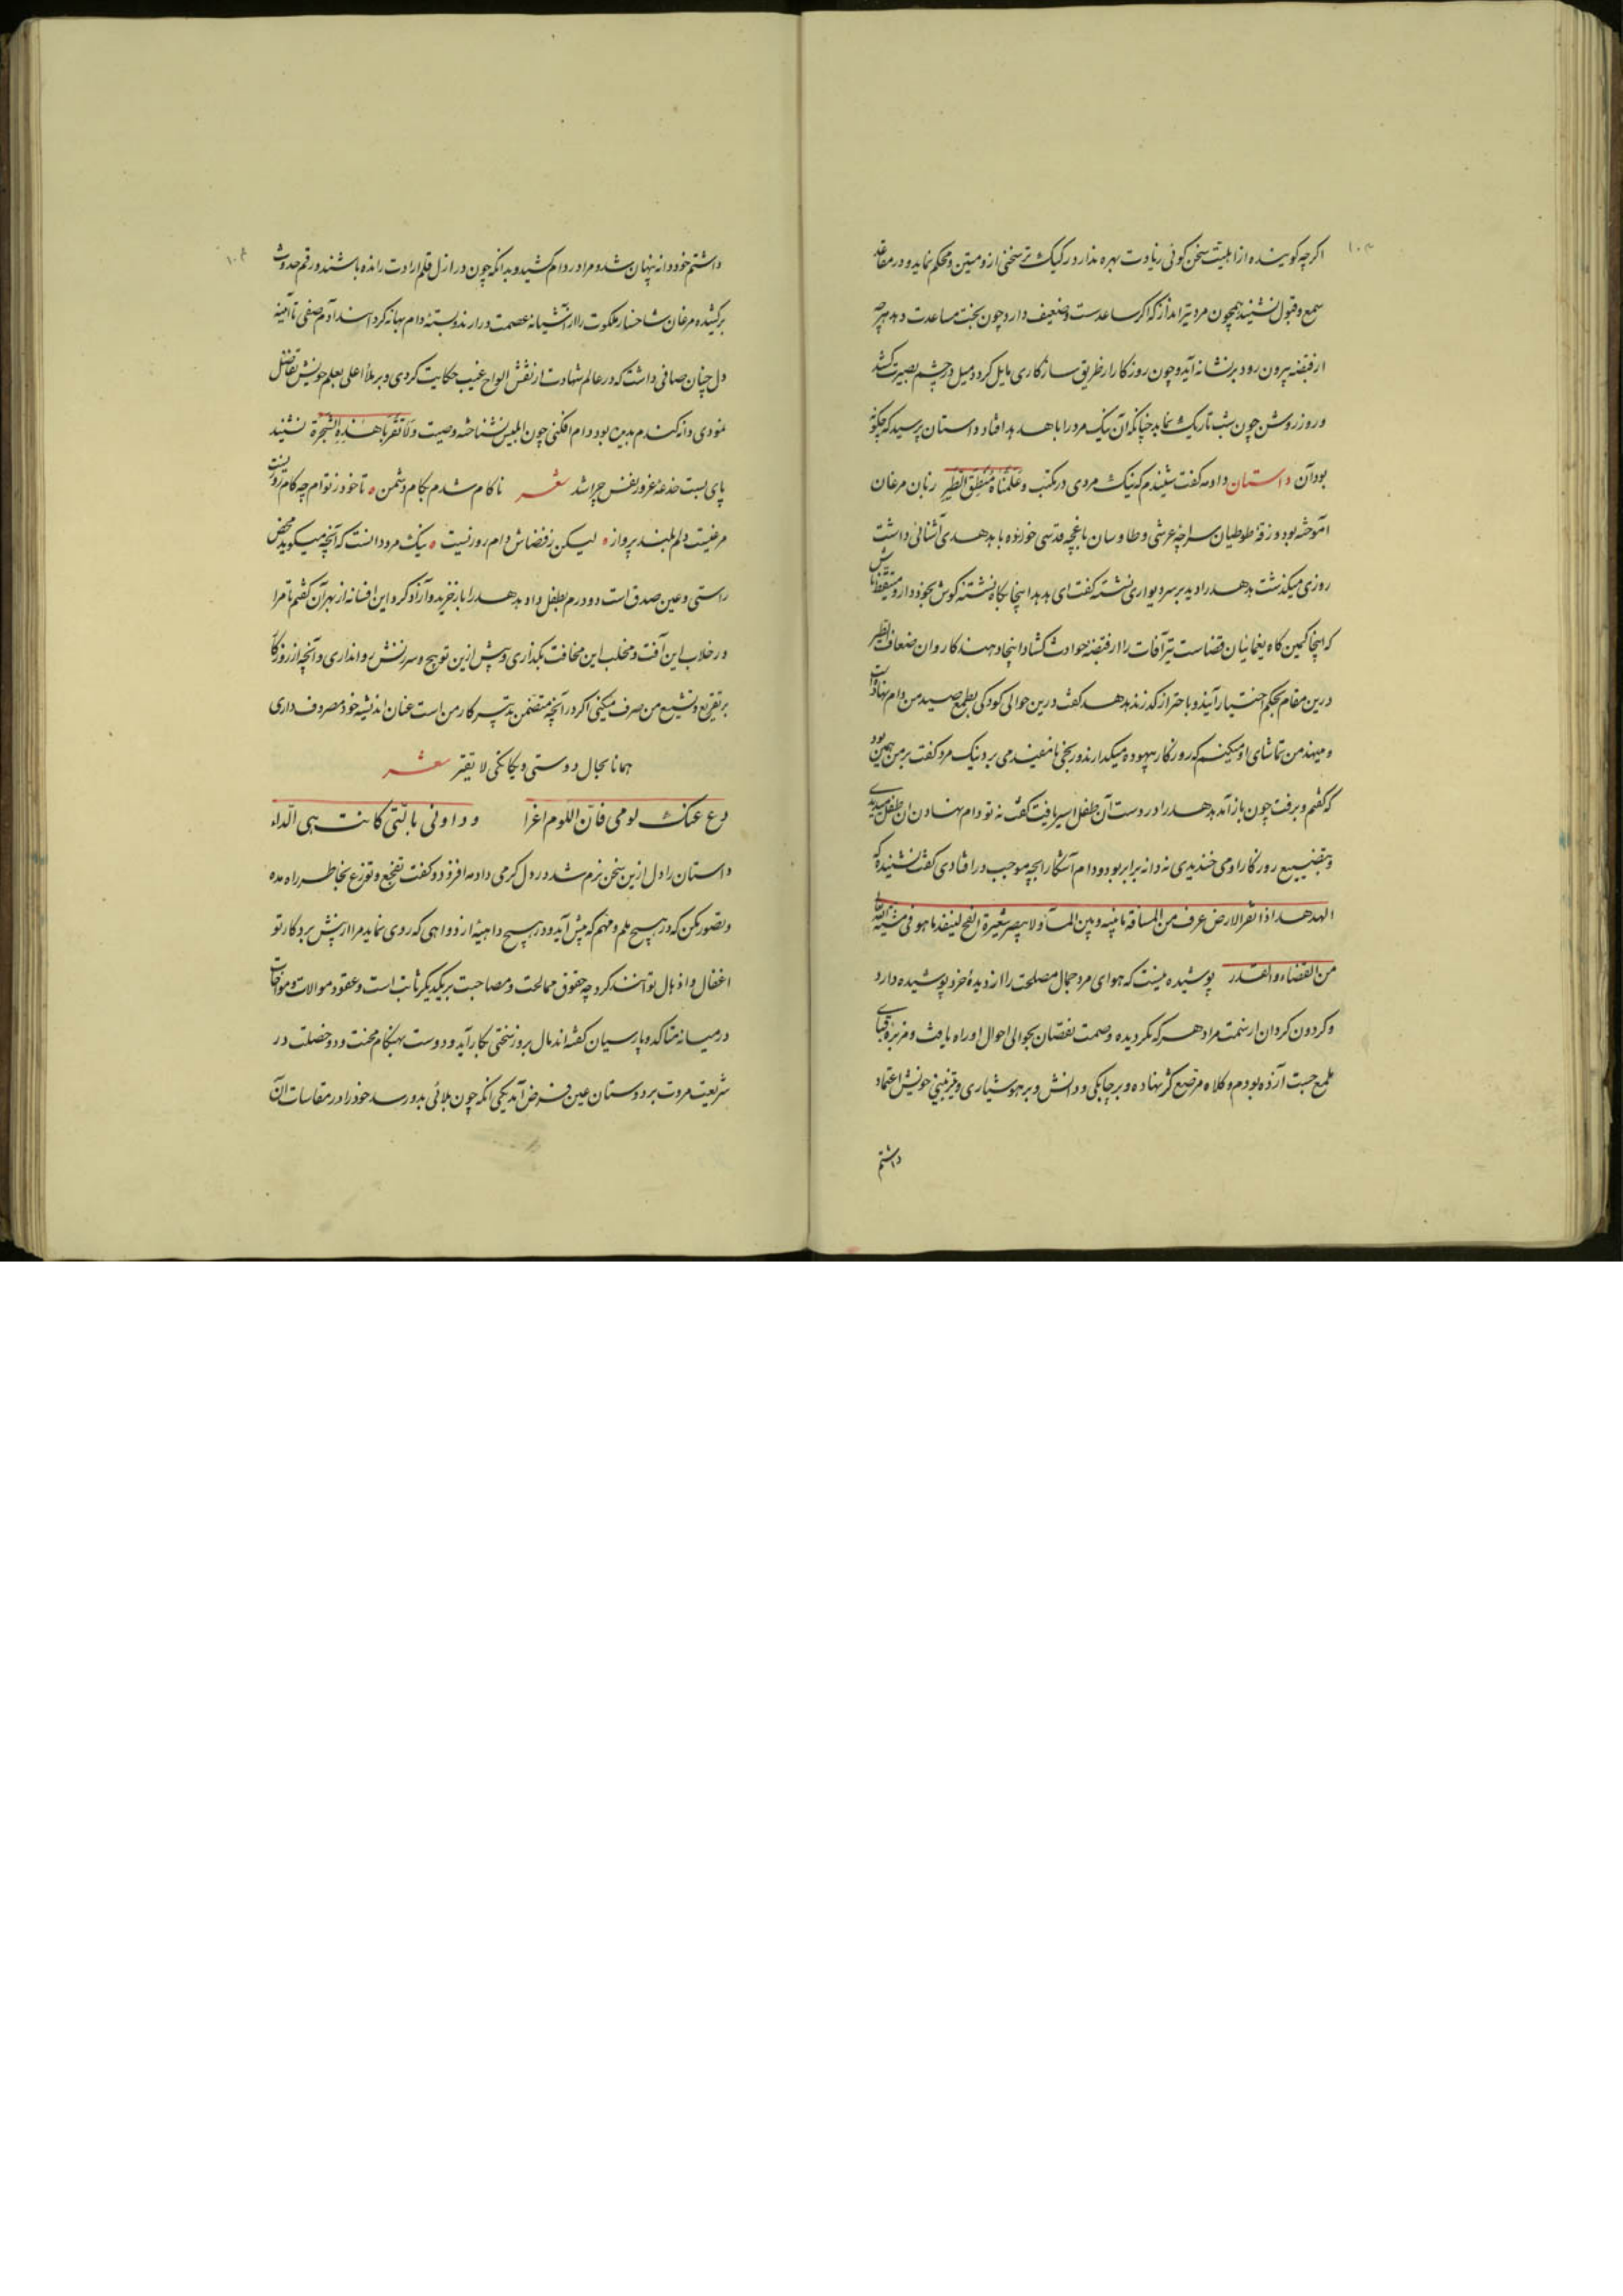 اگرچه گوینده از اهلیت سخن گوئی زیادت بهره ندارد رکیک‌تر سخنی ازو متین و محکم نماید و در مقاعد
سمع و قبول نشیند همچون مرد تیرانداز که اگر ساعد سست و ضعیف دارد چون بخت مساعدت دهد هرچه
از قبضه بیرون رود بر نشانه آید و چون روزگار از طریق سازگاری مایل گردد میل در چشم بصیرت کشد
و روز روشن چون شب تاریک نماید چنانکه آن نیک مرد را با هدهد افتاد داستان پرسید که چگونه
بود آن داستان دادمه گفت شنیدم که نیک مردی در مکتب وعلمناه منطق الطیر زبان مرغان
آموخته بود و زقهٔ طوطیان سراچهٔ عرشی و طاوسان باغچه قدسی خورده با هدهدی آشنائی داشت
روزی میگذشت هدهد را دید بر سر دیواری نشسته گفت ای هدهد اینجا که نشسته گوش بخود دار و متیقظ باش
که اینجا کمین گاه یغمائیان قضاست تیر آفات را از قبضه حوادث گشاد اینجا دهند کاروان ضعاف الطیر
درین مقام بحکم اختیار آیند و با حتراز گذرند هدهد گفت درین حوالی کودکی بطمع صید من دام نهاده است
و میبیند من تماشای او میکنم که روزگار بیهوده میگذارند و رنجی نامفید می برد نیک مرد گفت بر من همین بود
که گفتم و برفت چون باز آمد هدهد را در دست آن طفل اسیر یافت گفت نه تو دام نهادن آن طفل میدیدی
و بتضییع روزگار او می خندیدی نه دانه برابر بود و دام آشکارا بچه موجب در افتادی گفت نشنیدهٔ که
الهدهد اذا نقر الارض عرف من المسافة ما بینه و بین المآء ولا یبصر شعیرة الفخ لینفذ ما هو فی مشیة الله تعالی
من القضاء و القدر پوشیده نیست که هوای مرد جمال مصلحت را از دیدهٔ خرد پوشیده دارد
و گردون گردان از سمت مراد هر که بگردیده وصمت نقصان بحوالی احوال او راه یافت و من نیز قبای
ملمع چست آزده بودم و کلاه مرصع کژ نهاده و بر چابکی و دانش و بر هوشیاری و تیزبینی خویش اعتماد
داشتم
داشتم خود دانه پنهان شد و مرا در دام کشید و بدانکه چون در ازل قلم ارادت رانده باشند و رقم حدوث
برکشیده مرغان شاخسار ملکوت را از آشیانه عصمت درارند و بستهٔ دام بهانه گرداسند آدم صفی تا آینهٔ
دل چنان صافی داشت که در عالم شهادت از نقش الواح غیب حکایت کردی و بر ملأ اعلی بعلم خویش تفاضل
نمودی دانه گندم بدین بود و دام افکنی چون ابلیس نشناخته وصیت ولا تقربا هذه الشجرة نشنید
پای بست خدعهٔ غرور نفس چرا شد شعر ناکام شدم بکام دشمن تا خود ز توام چه کام روزیست
مرغیست دلم بلند پرواز لیکن ز قضاش دام روزیست نیک مرد دانست که آنچه میگوید محض
راستی و عین صدق است دو درم بطفل داد هدهد را باز خرید و آزاد کرد این افسانه از بهر آن گفتم تا مرا
در خلاب این آفت و مخلب این مخافت بگذاری و بیش ازین توبیخ و سرزنش روا نداری و آنچه از روزگار
بر تقریع و تشنیع من صرف میکنی اگر در آنچه متضمن تدبیر کار من است عنان اندیشه خود مصروف داری
همانا بحال دوستی و یگانگی لایقتر شعر
دع عنک لومی فان اللوم اغرا وداونی بالتی کانت هی الداء
داستان را دل ازین سخن نرم شد در دل گرمی دادمه افزود و گفت تفجع و توزع بخاطر راه مده
و تصور مکن که در هیچ ملم و مهم که پیش آید و در هیچ داهیه از دواهی که روی نماید مرا از پیش برد کار تو
اغفال و اذهال تواند کرد چه حقوق ممالحت و مصاحبت بر یکدیگر ثابت است و عقود موالات و مواخات
در میانه متأکد و پارسیان گفته‌اند مال بروز سختی بکار آید و دوست بهنگام محنت و دو خصلت در
شریعت مروت بر دوستان عین فرض آید یکی آنکه چون بلائی بدو رسد خود را در مقاسات آن